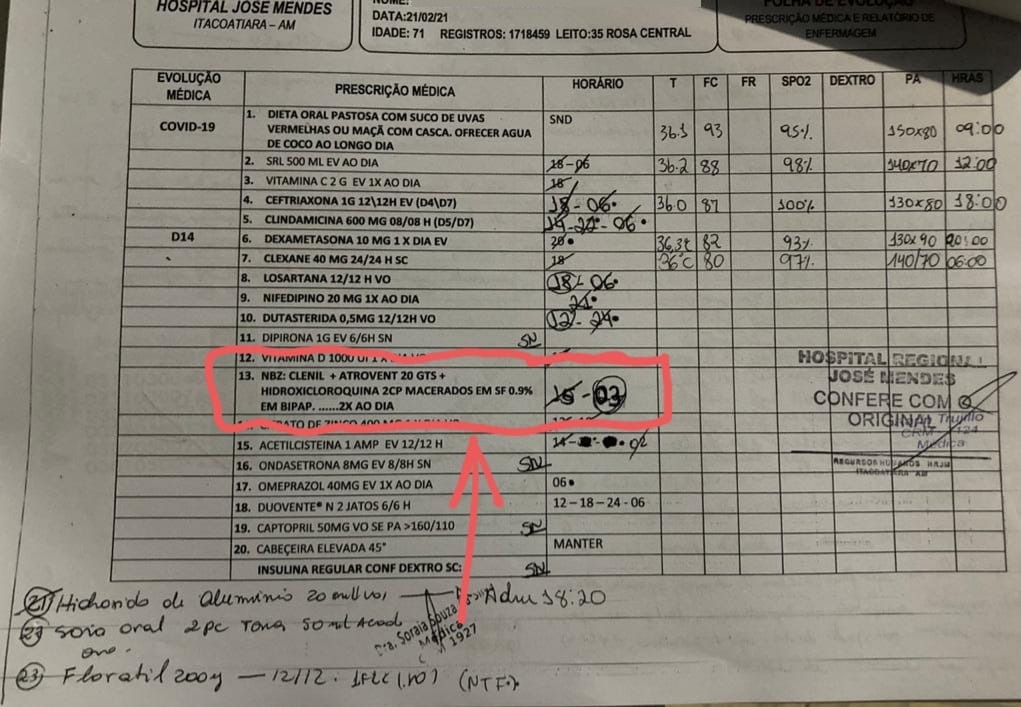 HOSPITAL JOSÉ MENDES
ITACOATIARA – AM
NOME:
DATA:21/02/21
IDADE: 71 REGISTROS: 1718459 LEITO:35 ROSA CENTRAL
FOLHA DE EVOLUÇÃO
PRESCRIÇÃO MÉDICA E RELATÓRIO DE
ENFERMAGEM
EVOLUÇÃO MÉDICA PRESCRIÇÃO MÉDICA HORÁRIO T FC FR SPO2 DEXTRO PA HRAS
COVID-19 1. DIETA ORAL PASTOSA COM SUCO DE UVAS SND
VERMELHAS OU MAÇÃ COM CASCA. OFERECER AGUA 36.1 93 95% 150x80 09:00
DE COCO AO LONGO DIA
2. SRL 500 ML EV AO DIA 18-06 36.2 88 98% 140x70 12:00
3. VITAMINA C 2 G EV 1X AO DIA 18
4. CEFTRIAXONA 1G 12\12H EV (D4\D7) 18-06. 36.0 87 100% 130x80 18:00
5. CLINDAMICINA 600 MG 08/08 H (D5/D7) 14-22-06.
D14 6. DEXAMETASONA 10 MG 1 X DIA EV 20. 82 93% 130x90 20:00
7. CLEXANE 40 MG 24/24 H SC 18 36°C 80 97% 140/70 06:00
8. LOSARTANA 12/12 H VO 18-06.
9. NIFEDIPINO 20 MG 1X AO DIA 21.
10. DUTASTERIDA 0,5MG 12/12H VO 12-24.
11. DIPIRONA 1G EV 6/6H SN SN
12. VITAMINA D 1000 UI 1 X DIA VO
13. NBZ: CLENIL + ATROVENT 20 GTS +
HIDROXICLOROQUINA 2CP MACERADOS EM SF 0.9% 15-03
EM BIPAP. ......2X AO DIA
15. ACETILCISTEINA 1 AMP EV 12/12 H
16. ONDASETRONA 8MG EV 8/8H SN SN
17. OMEPRAZOL 40MG EV 1X AO DIA 06.
18. DUOVENTE® N 2 JATOS 6/6 H 12-18-24-06
19. CAPTOPRIL 50MG VO SE PA >160/110 SN
20. CABEÇEIRA ELEVADA 45° MANTER
INSULINA REGULAR CONF DEXTRO SC: SN
HOSPITAL REGIONAL
JOSÉ MENDES
CONFERE COM O
ORIGINAL
Trujillo
CRM
Médica
RECURSOS HUMANOS HRJM
ITACOATIARA AM
21) Hidroxido de aluminio 20 ml Adm 18:20
22) soro oral 50 ml
Dra. Soraia Souza
Médica
1927
23) Floratil 200g — 12/12.